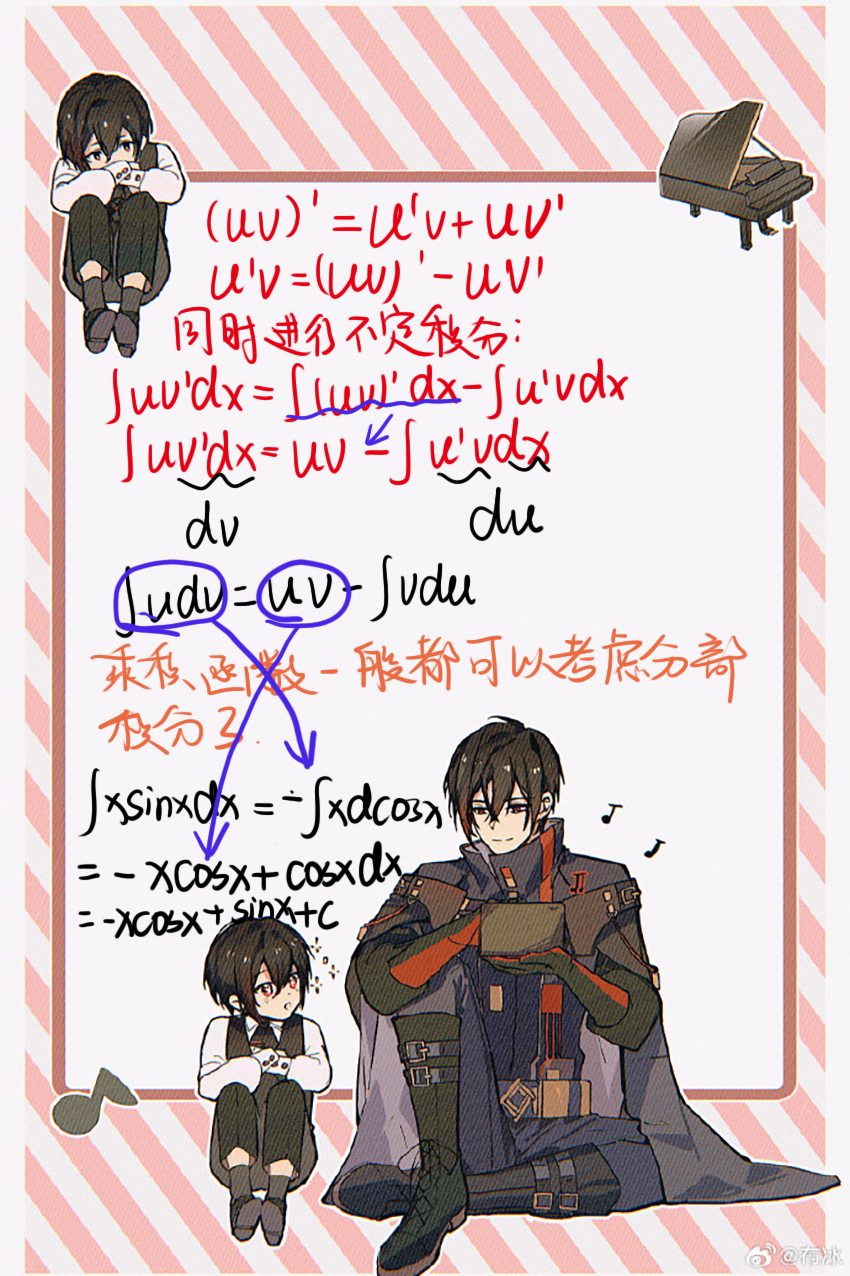 (uv)' = u'v + uv'
u'v = (uv)' - uv'
同时进行不定积分：
∫uv'dx = ∫(uv)'dx - ∫u'vdx
∫uv'dx = uv - ∫u'vdx
dv du
∫udv = uv - ∫vdu
乘积函数一般都可以考虑分部
积分了.
∫xsinxdx = -∫xdcosx
= -xcosx + cosxdx
= -xcosx + sinx + C
@布冰